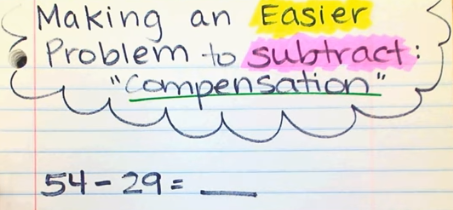 Making an Easier
Problem to subtract:
"Compensation"
54 - 29 = ___